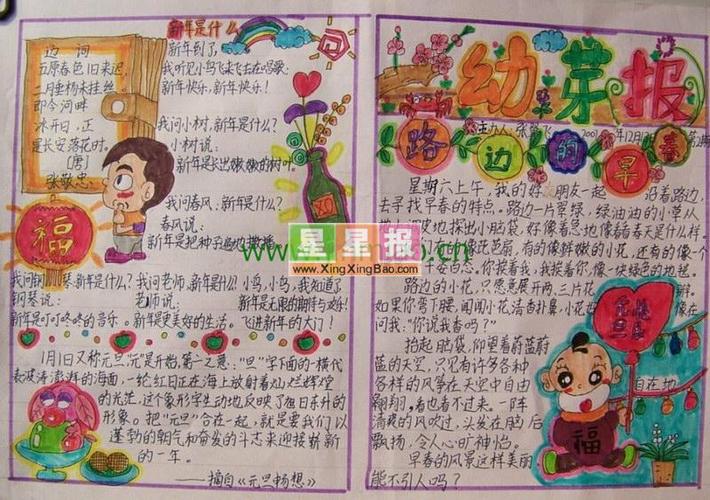 边词
五原春色旧来迟,
二月垂杨未挂丝。
即今河畔
冰开日,正
是长安落花时。
〔唐〕
张敬忠
福
新年是什么
新年到了,
我听见小鸟飞来飞去在唱歌:
新年快乐,新年快乐!
我问小树,新年是什么?
小树说:
新年是长出嫩嫩的树叶。
我问春风,新年是什么?
春风说:
新年是把种子
XO
我问钢琴,新年是什么?
钢琴说:
新年是叮叮咚咚的音乐。
我问老师,新年是什么?
老师说:
新年是更美好的生活。
小鸟,小鸟,我知道了
新年是无限的期待与欢乐!
飞进新年的大门!
1月1日又称元旦,“元”是开始,第一之意:“旦”字下面的一横代
表波涛澎湃的海面,一轮红日正在海上放射着灿烂辉煌
的光芒,这个象形字生动地反映了旭日东升的
形象。把“元旦”合在一起,就是要我们以
蓬勃的朝气和奋发的斗志来迎接崭新
的一年。
——摘自《元旦畅想》
幼芽报
主办人:张
2007年12月
第2期
路边的早春
星期六上午,我的好朋友一起沿着路边,
去寻找早春的特点。路边一片翠绿,绿油油的小草从
地探出小脑袋,好像着急地像看看春天是什么样
有的像鲜嫩的小花,还有的像一个
你挨着我,我挨着你,像一块绿色的地毯。
路边的小花,只愿意展开两、三片花瓣。
如果你弯下腰,闻闻小花清香扑鼻,小花
像在
问我:“你说我香吗?”
抬起脑袋,仰望着蔚蓝蔚
蓝的天空,只见有许多各种
各样的风筝在天空中自由自在地
翱翔,看也看不过来。一阵
清爽的风吹过,头发在脑后
飘扬,令人心旷神怡。
早春的风景这样美丽
能不引人吗?
庆祝
元旦
福
星星报
www.XingXingBao.com
.cn